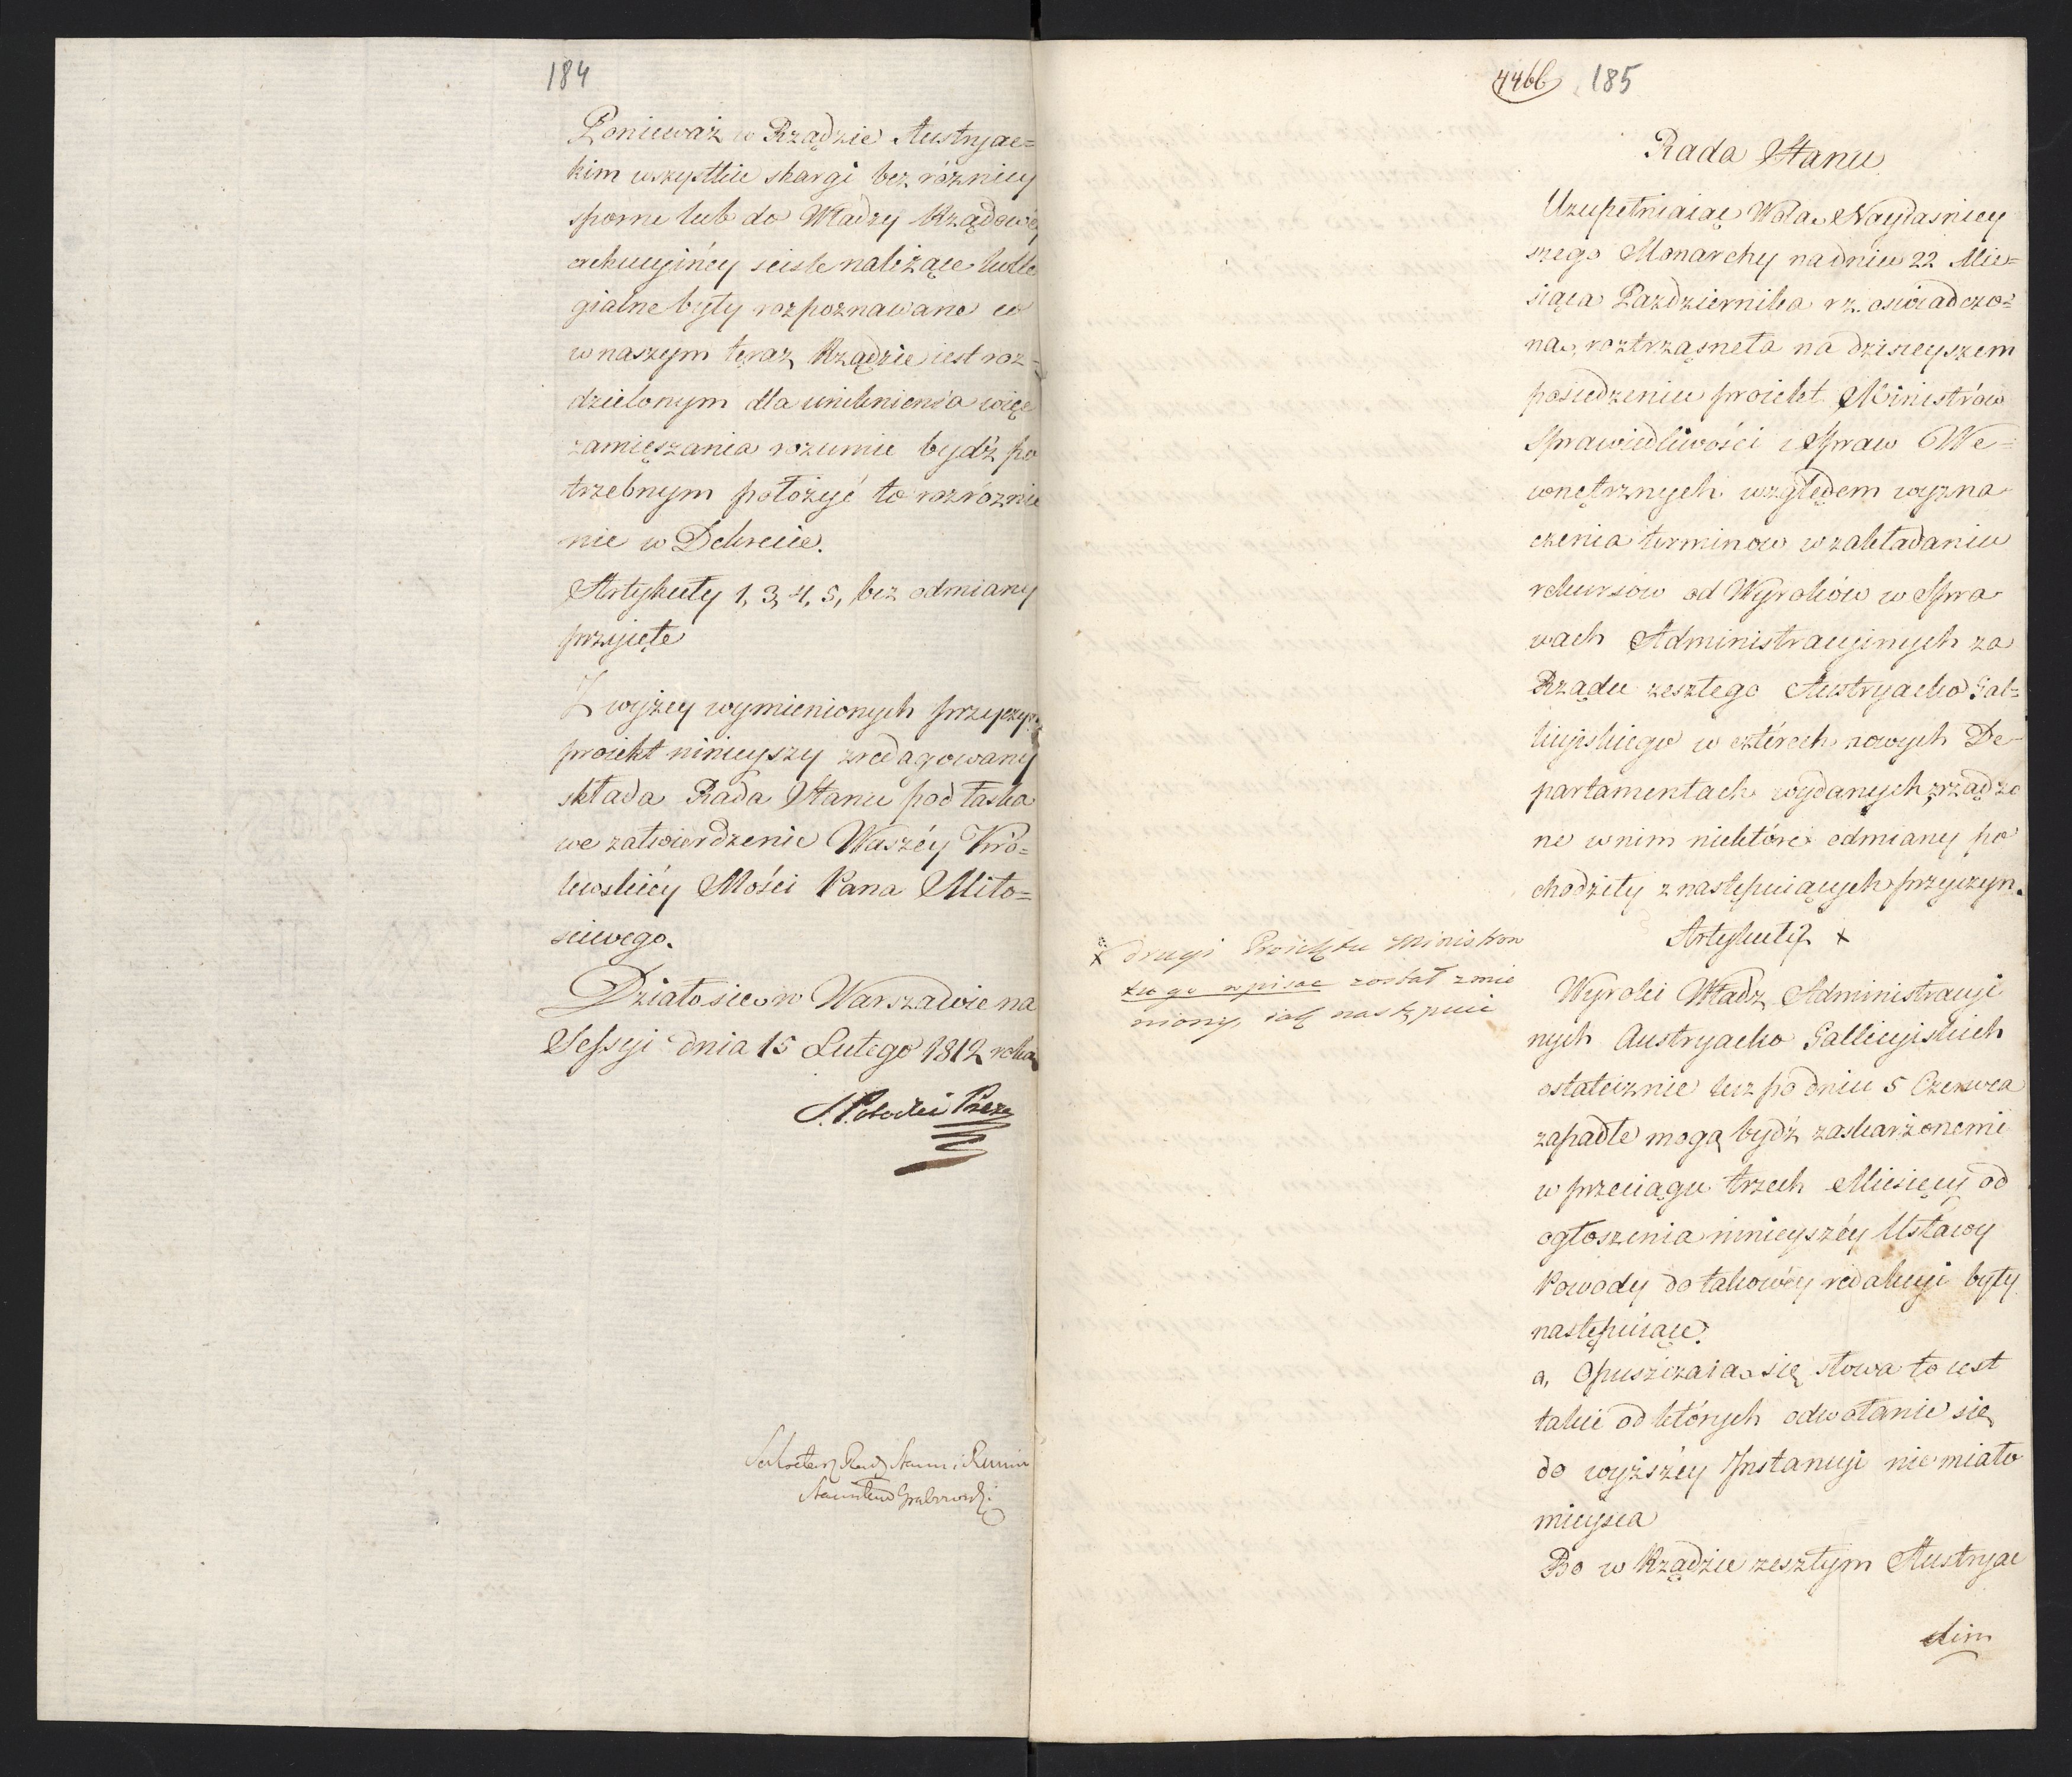 184
Ponieważ w Rządzie Austryac=
kim wszystkie skargi bez różnicy
sporne lub do Władzy Rządowéy
exekucyinéy sciśle należące kolle
gialne były rozpoznawane co
w naszym teraz Rządzie iest roz=
dzielonym dla uniknienia więc
zamięszania rozumie bydź po
trzebnym położyć to rozróżnie
nie w Dekrecie.
Artykuły 1, 3, 4, 5, bez odmiany
przyięte
Z wyżey wymienionych przyczyn
proiekt ninieyszy zredagowany
składa Rada Stanu pod łaska
we zatwierdzenie Waszéy Kró=
lewskiéy Mości Pana Miło=
sciwego.
Działo się w Warszawie na
Sessyi dnia 15 Lutego 1812 roku
S. Potocki Prezes
Sekretarz Rady Stanu i Ministrów
Stanisław Grabowski
446b 185
Rada Stanu
Uzupełniaiąc Wolą Nayiaśniey
szego Monarchy na dniu 22 Mie=
siąca Października r.z. oświadczo=
ną, roztrząsnęła na dzisieyszem
posiedzeniu proiekt Ministrów
Sprawiedliwości i Spraw We=
wnętrznych względem wyzna
czenia terminow w zakładaniu
rekursów od Wyroków w Spra
wach Administracyinych za
Rządu zeszłego Austryacko Gal=
licyiskiego w czterech nowych De=
partamentach wydanych, zrządzo
ne w nim niektóre odmiany po
chodziły z następuiących przyczyn.
Artykuł 2 x
x drugi Proiektu Ministrow
tu go wpisac został zmie
niony, iak następuie
Wyroki Władz Administracyi
nych Austryacko Gallicyiskich
ostatecznie lecz po dniu 5 Czerwca
zapadłe mogą bydź zaskarżonemi
w przeciągu trzech Miesięcy od
ogłoszenia ninieyszéy Ustawy
Powody do takowéy redakcyi były
następuiące.
a, Opuszczaią się słowa to iest
takie od których odwołanie się
do wyższéy Instancyi nie miało
mieysca
Bo w Rządzie zeszłym Austryac
kim